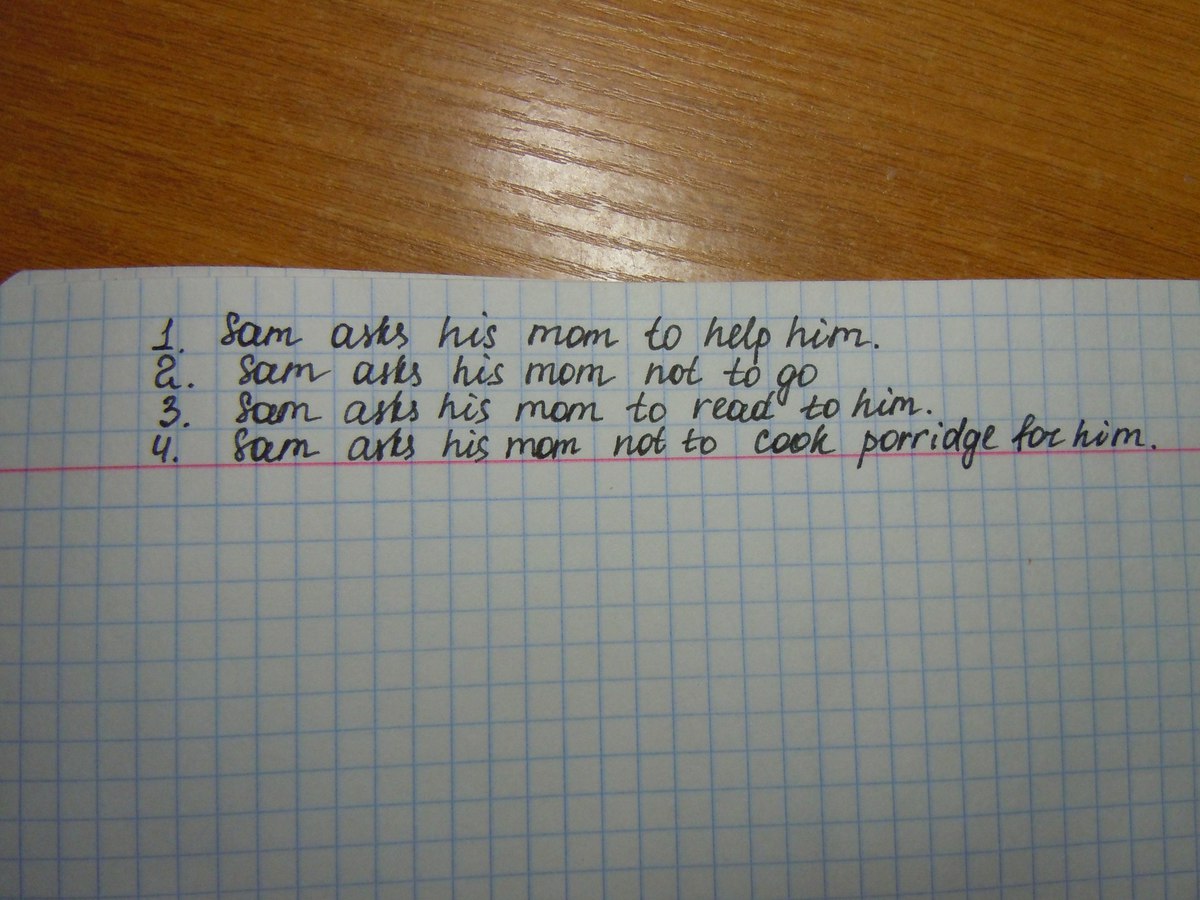 1. Sam asks his mom to help him.
2. Sam asks his mom not to go
3. Sam asks his mom to read to him.
4. Sam asks his mom not to cook porridge for him.